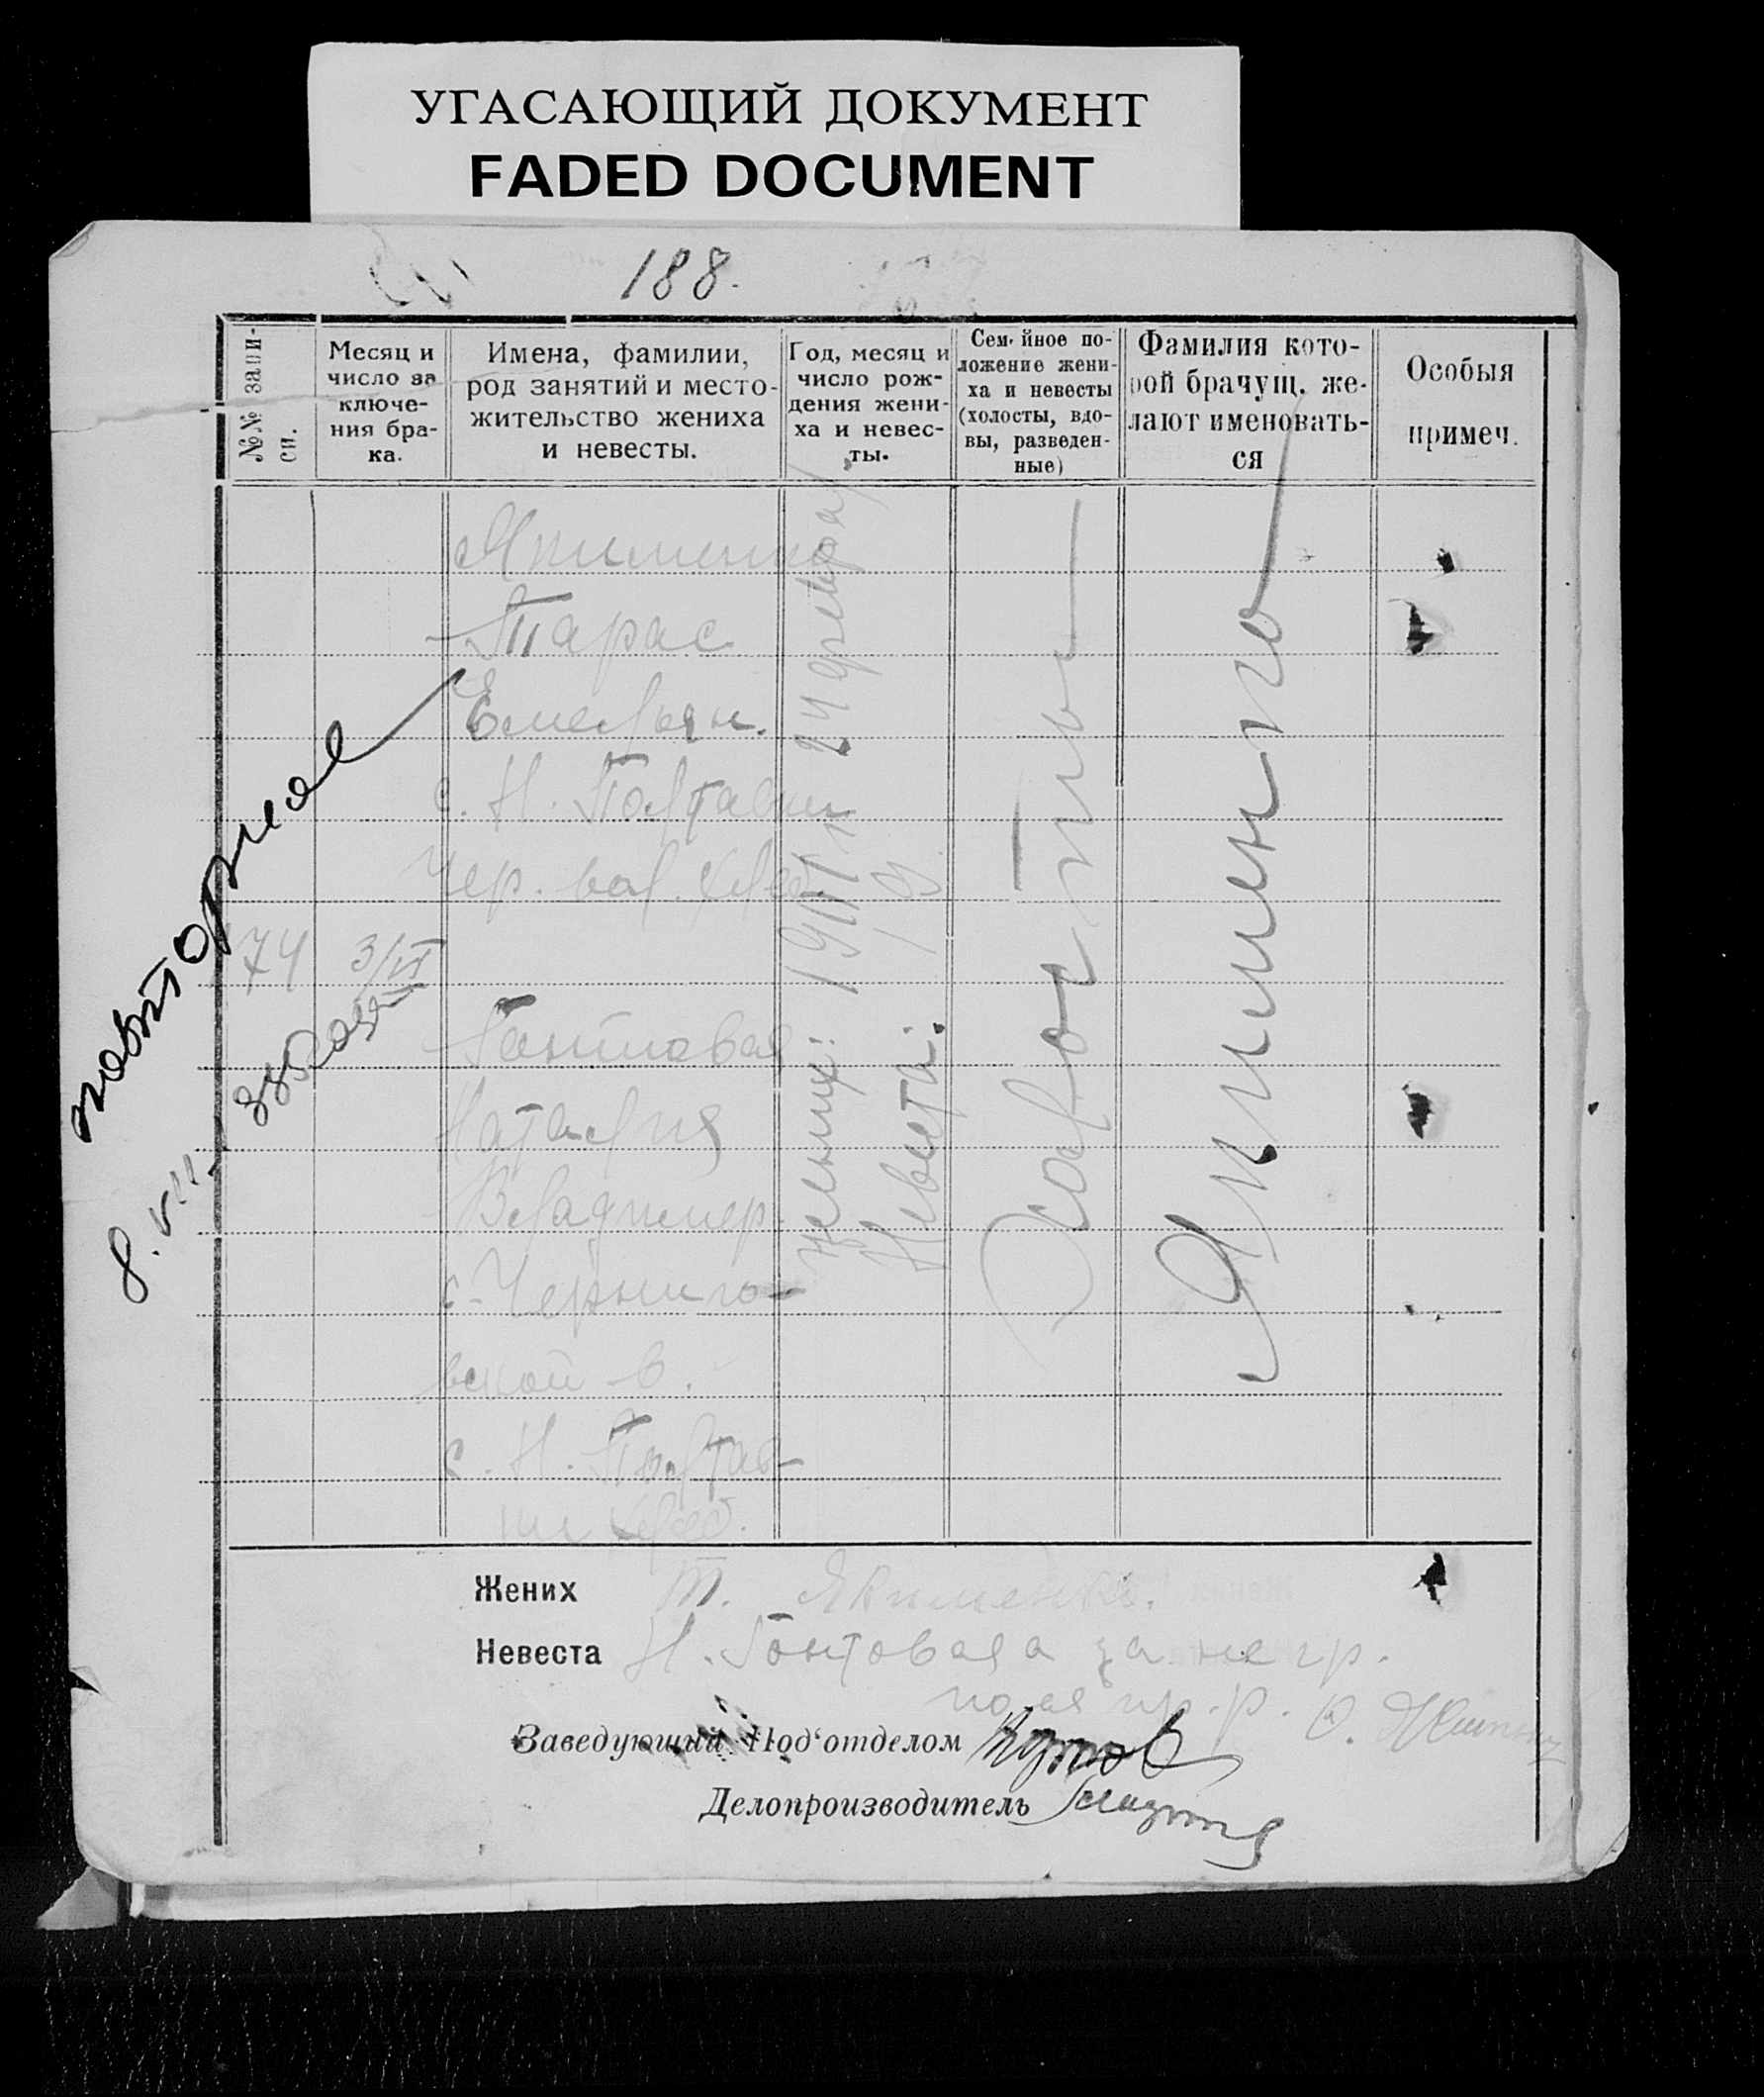 УГАСАЮЩИЙ ДОКУМЕНТ
FADED DOCUMENT
188.
№№ запи-
си.
Месяц и
число за
ключе-
ния бра-
ка.
Имена, фамилии,
род занятий и место-
жительство жениха
и невесты.
Год, месяц и
число рож-
дения жени-
ха и невес-
ты.
Семейное по-
ложение жени-
ха и невесты
(холосты, вдо-
вы, разведен-
ные)
Фамилия кото-
рой брачущ. же-
лают именовать-
ся
Особыя
примеч.
Якименко
Тарас
Емельян.
с. Н. Полтавки
Чер. вол. хлеб.
74
3/VI
Гонтовая
Наталия
Владимер.
с. Черниго-
вской в.
с. Н. Полтав-
ки хлеб.
24 февраля
Невеста:
Холостой
Якименко
повторное
8. VII
Жених Т. Якименко.
Невеста Н. Гонтовая а за не гр.
по ея пр. р. О.
Заведующий Под'отделом
Делопроизводитель